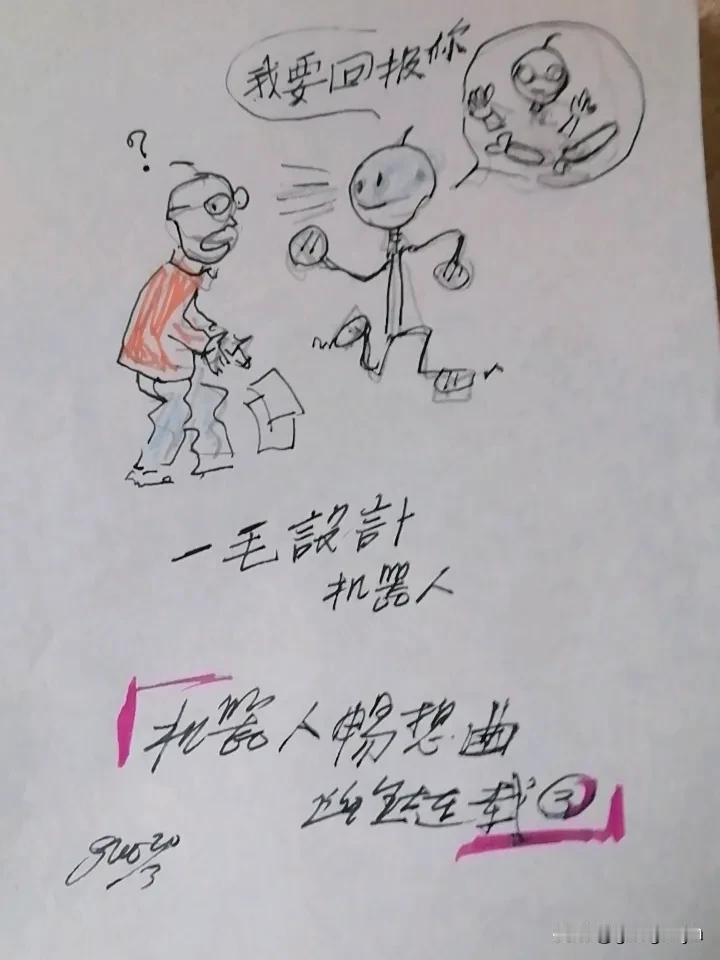 ?
我要回报你
一毛設計
机器人
机器人暢想曲
连载③